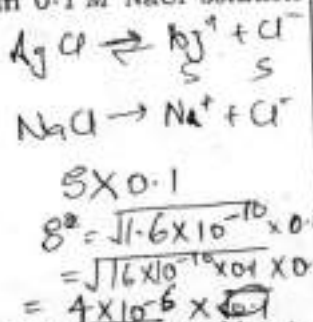 in 0.1 M NaCl solution
AgCl ⇌ Ag⁺ + Cl⁻
S S
NaCl → Na⁺ + Cl⁻
S×0.1
= √1.6×10⁻¹⁰ × 0.
= √16×10⁻¹⁰×0.1 × 0
= 4×10⁻⁶ ×